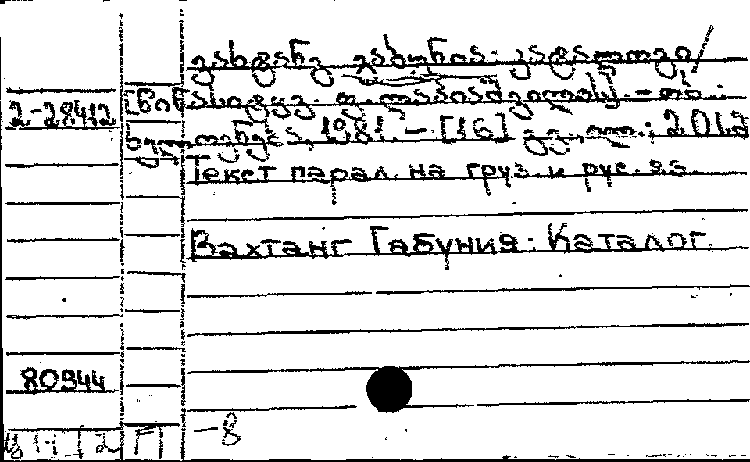 ვახტანგ გაბუნია: კატალოგი/
2-28412 [წინასიტყვ. ფ. ლაპიაშვილისა]. – თბ.:
ხელოვნება, 1981. – [16] გვ., ილ.; 20სმ
Текст парал. на груз. и рус. яз.
Вахтанг Габуния: Каталог.
80944
–8